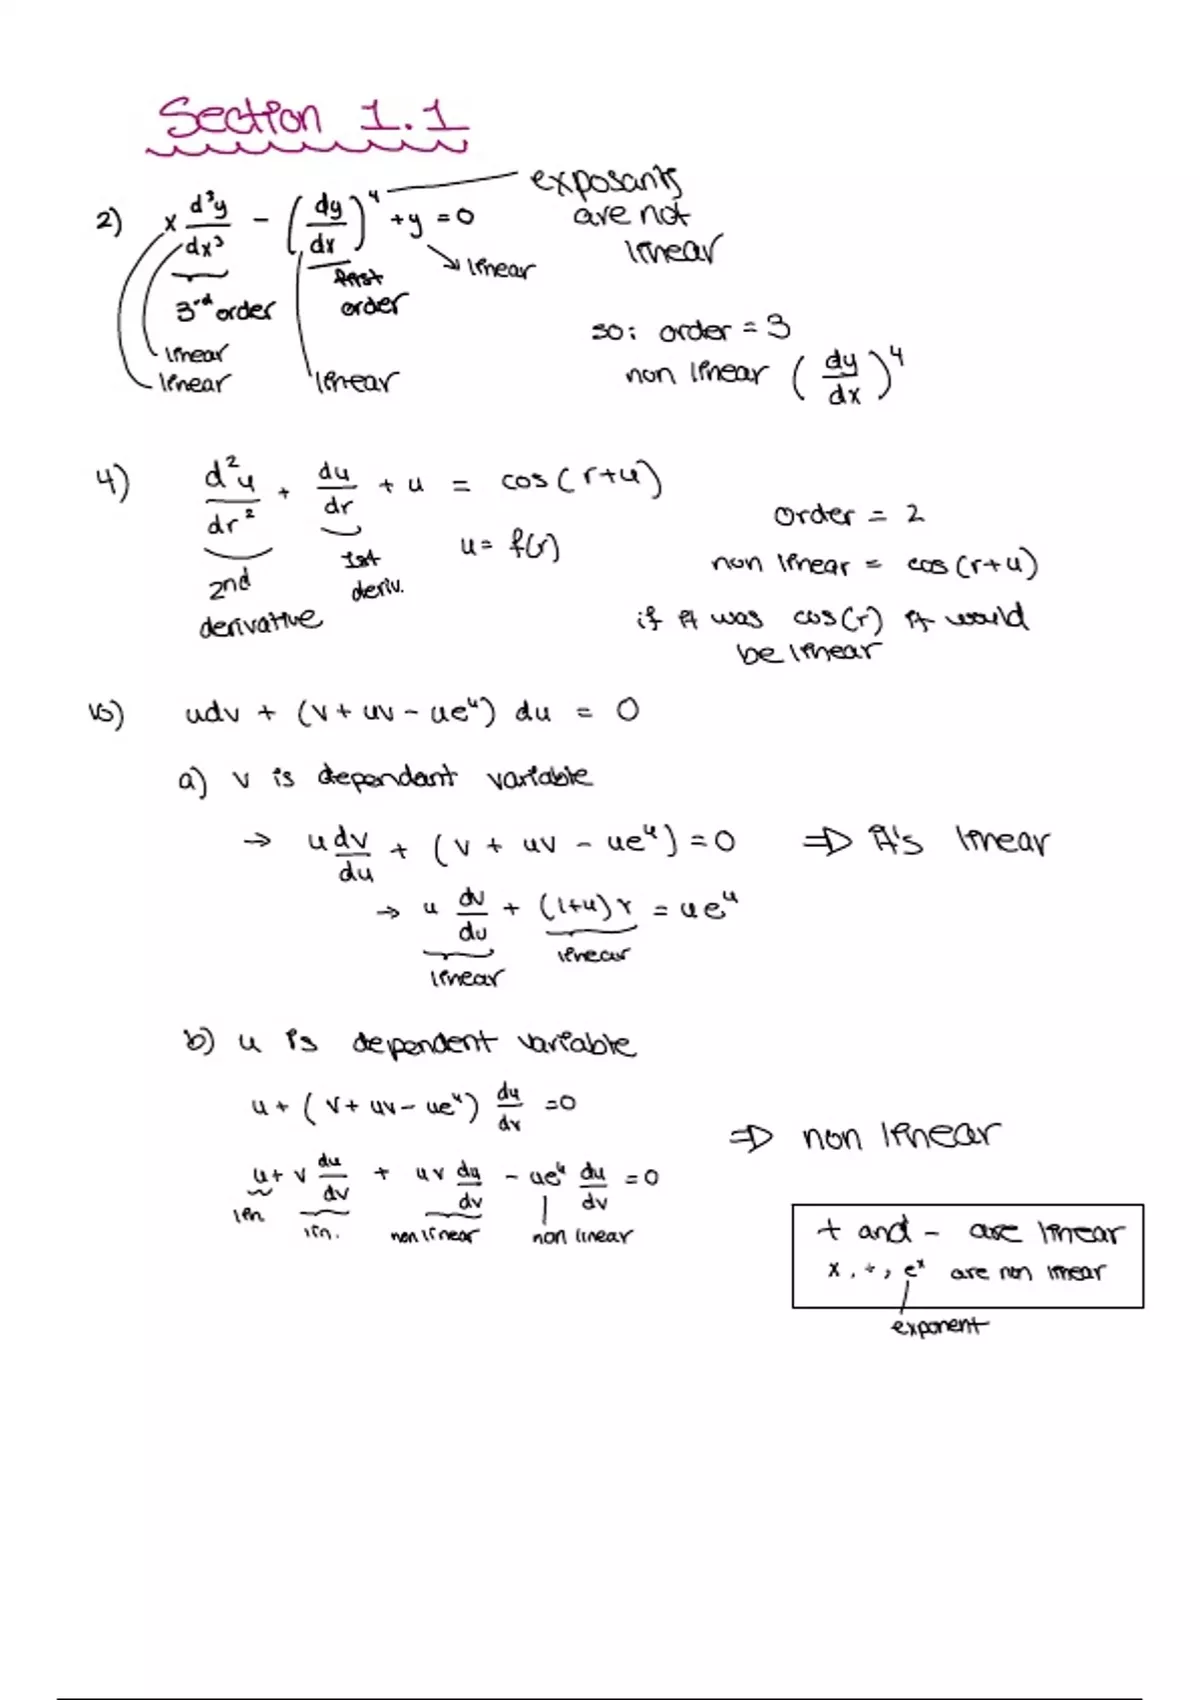 Section 1.1
2) x d³y/dx³ - (dy/dx)⁴ + y = 0
exposants
are not
linear
3rd order
first
order
linear
linear
linear
linear
so: order = 3
non linear (dy/dx)⁴
4) d²u/dr² + du/dr + u = cos(r+u)
2nd
derivative
1st
deriv.
u = f(r)
order = 2
non linear = cos(r+u)
if it was cos(r) it would
be linear
udv + (v + uv - ueᵘ) du = 0
a) v is dependant variable
→ u dv/du + (v + uv - ueᵘ) = 0 ⇒ it's linear
→ u dv/du + (1+u)v = ueᵘ
linear
linear
b) u is dependent variable
u + (v + uv - ueᵘ) du/dv = 0
⇒ non linear
u + v du/dv + uv du/dv - ueᵘ du/dv = 0
lin.
lin.
non linear
non linear
+ and - are linear
x, ÷, eˣ are non linear
exponent